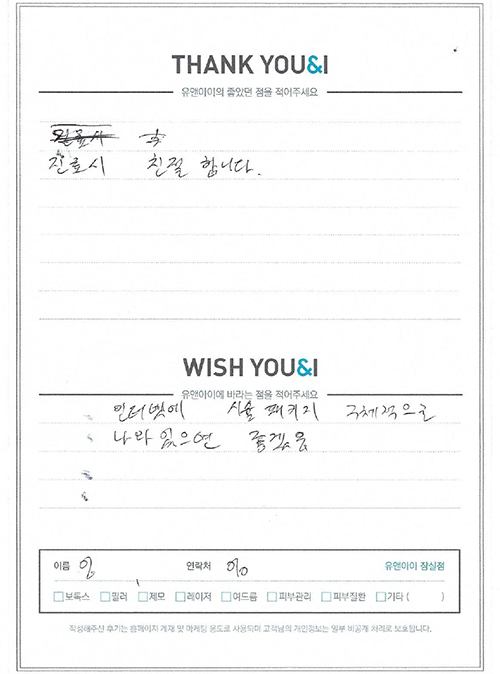 THANK YOU&I
유앤아이의 좋았던 점을 적어주세요
진료시 친절 합니다.
WISH YOU&I
유앤아이에 바라는 점을 적어주세요
인터넷에 시술 패키지 구체적으로
나와 있으면 좋겠음
이름 임 연락처 010 유앤아이 잠실점
보톡스 필러 제모 레이저 여드름 피부관리 피부질환 기타 ( )
작성해주신 후기는 홈페이지 게재 및 마케팅 용도로 사용되며 고객님의 개인정보는 일부 비공개 처리로 보호됩니다.